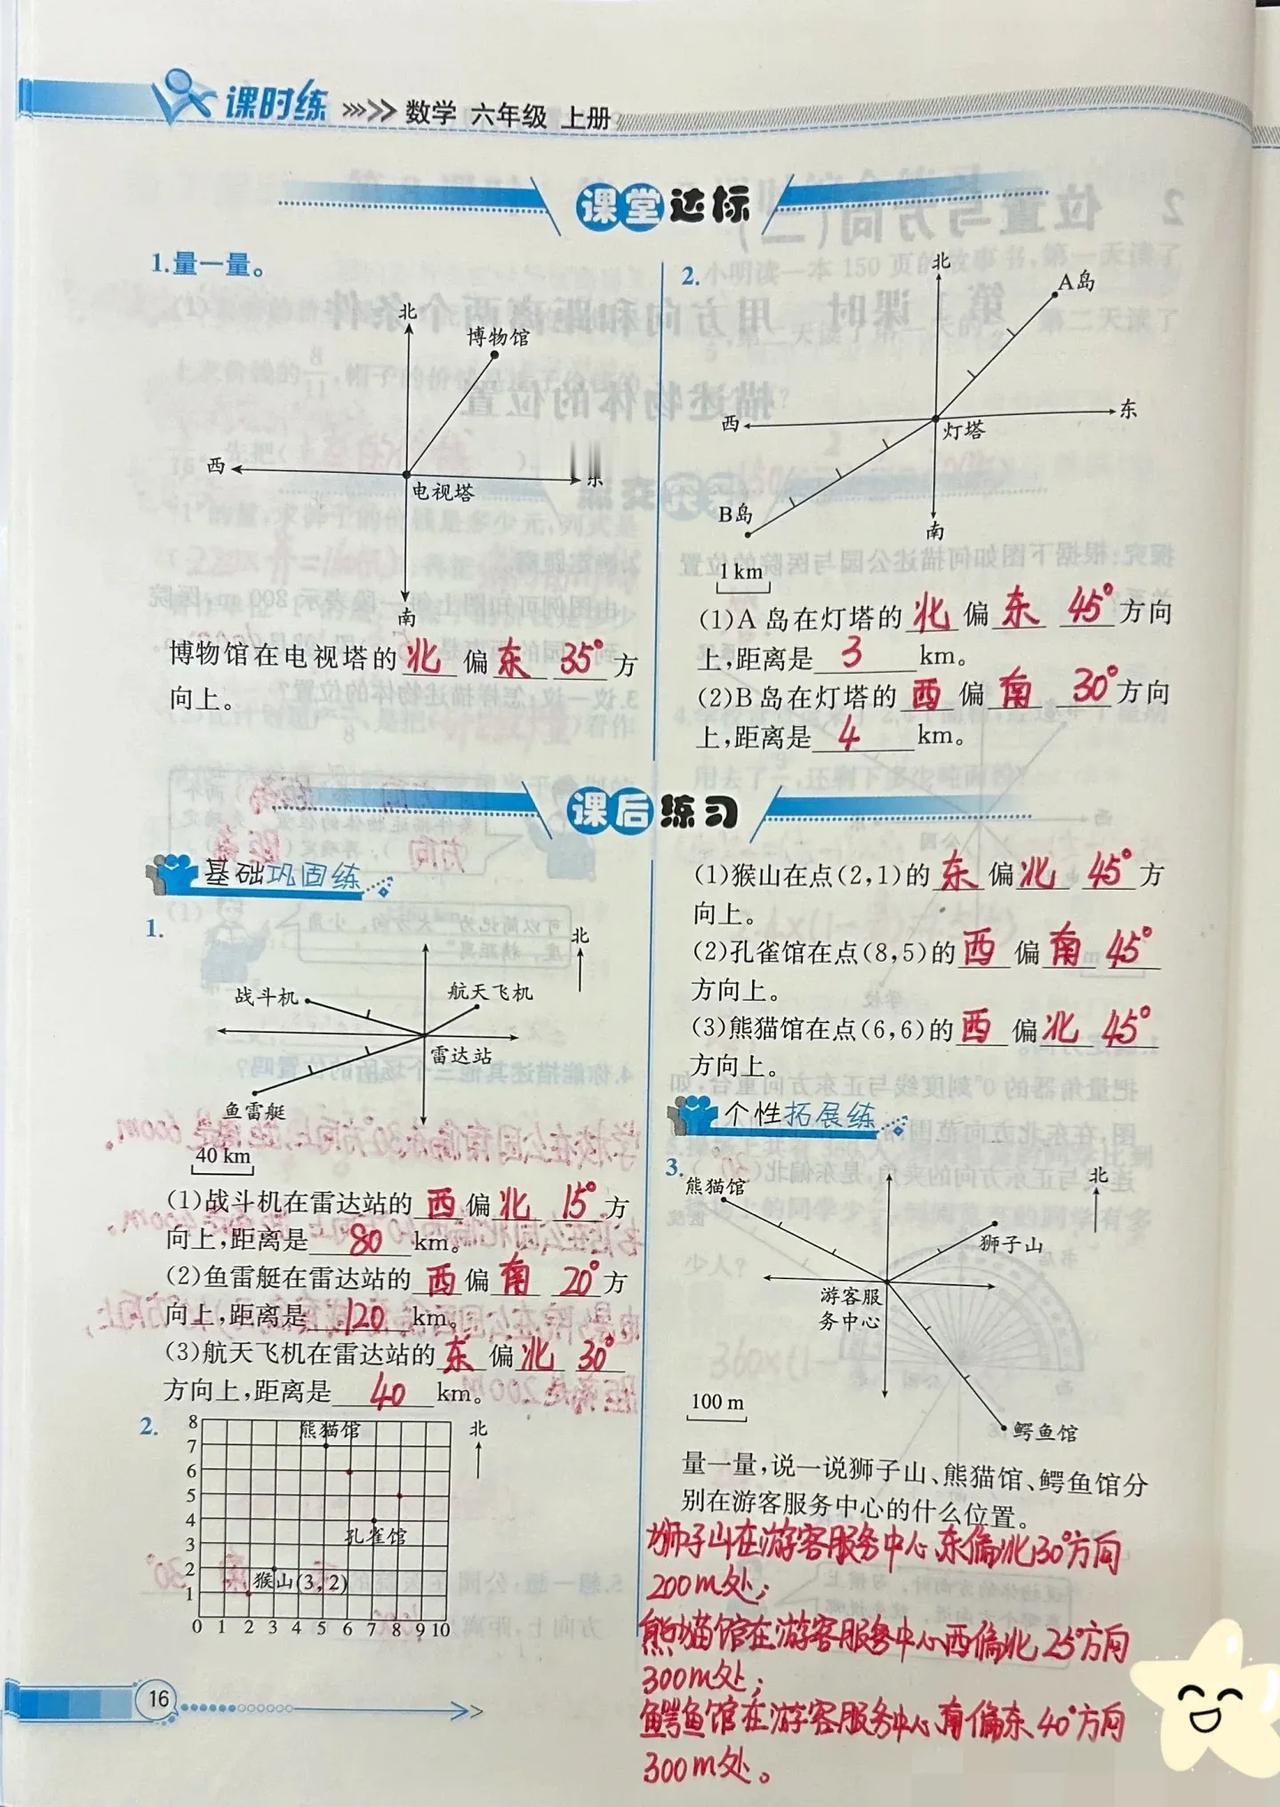 课时练 数学 六年级 上册
课堂达标
1.量一量。
北
博物馆
西
东
电视塔
南
博物馆在电视塔的 北 偏 东 35° 方
向上。
2.
北
A岛
东
西
灯塔
B岛
南
1 km
(1)A 岛在灯塔的 北 偏 东 45° 方向
上,距离是 3 km。
(2)B 岛在灯塔的 西 偏 南 30° 方向
上,距离是 4 km。
课后练习
基础巩固练
1.
北
战斗机
航天飞机
雷达站
鱼雷艇
40 km
(1)战斗机在雷达站的 西 偏 北 15° 方
向上,距离是 80 km。
(2)鱼雷艇在雷达站的 西 偏 南 20° 方
向上,距离是 120 km。
(3)航天飞机在雷达站的 东 偏 北 30°
方向上,距离是 40 km。
2.
8
7
6
5
4
3
2
1
0 1 2 3 4 5 6 7 8 9 10
熊猫馆
孔雀馆
猴山(3,2)
北
(1)猴山在点(2,1)的 东 偏 北 45° 方
向上。
(2)孔雀馆在点(8,5)的 西 偏 南 45°
方向上。
(3)熊猫馆在点(6,6)的 西 偏 北 45°
方向上。
个性拓展练
3.
熊猫馆
北
狮子山
游客服
务中心
100 m
鳄鱼馆
量一量,说一说狮子山、熊猫馆、鳄鱼馆分
别在游客服务中心的什么位置。
狮子山在游客服务中心东偏北30°方向
200m处;
熊猫馆在游客服务中心西偏北25°方向
300m处;
鳄鱼馆在游客服务中心南偏东40°方向
300m处。
16